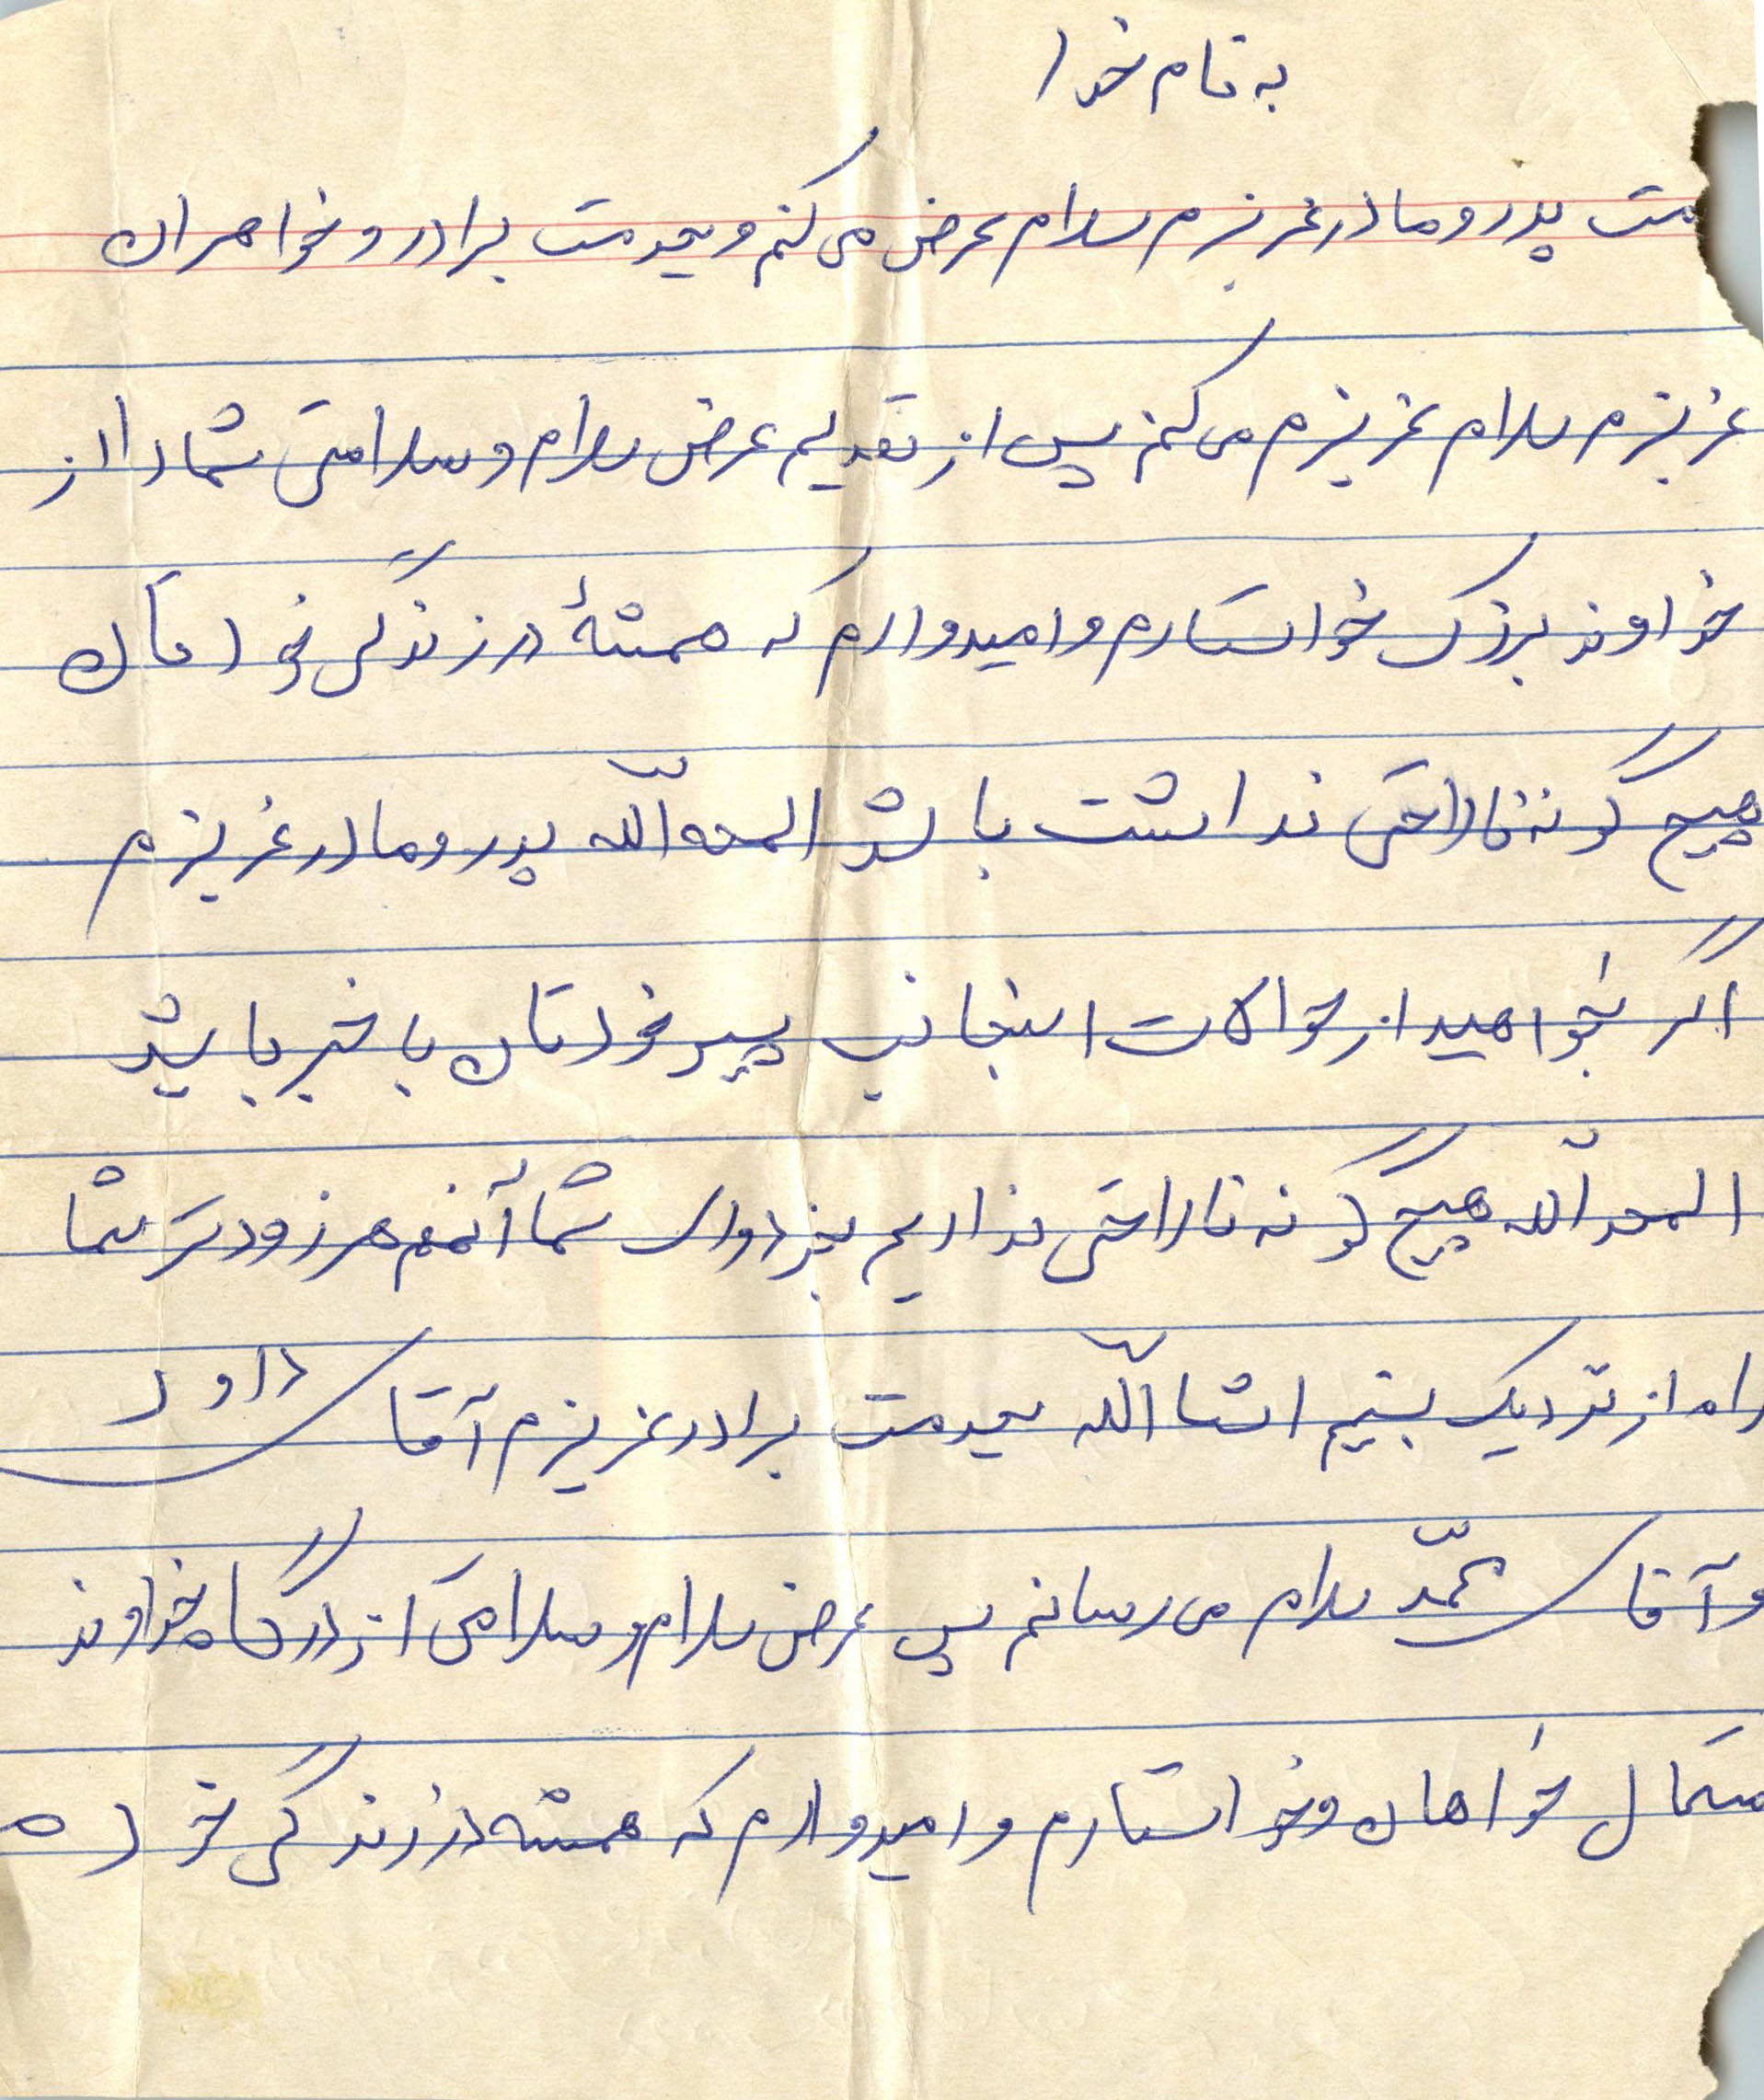 به نام خدا
مت پدر و مادر عزیزم سلام عرض می کنم و بخدمت برادر و خواهران
عزیزم سلام عزیزم می کنم پس از تقدیم عرض سلام و سلامتی شما را از
خداوند بزرگ خواستارم و امیدوارم که همشهٔ در زندگی خودتان
هیچ گونه ناراحتی نداشت باشد المحه اللّه پدر و مادر عزیزم
اگر بخواهید از حوالات اینجانب پسر خودتان با خبر باشید
المحد اللّه هیچ گونه ناراحتی نداریم بجز دوری شما آنهم هر زودتر شما
راه از نزدیک بینیم انشا اللّه بخدمت برادر عزیزم آقای داود
و آقای محمّد سلام می رسانم پس عرض سلام و سلامتی از درگاه خداوند
متعال خواهان و خواستارم و امیدوارم که همشه در زندگی خود